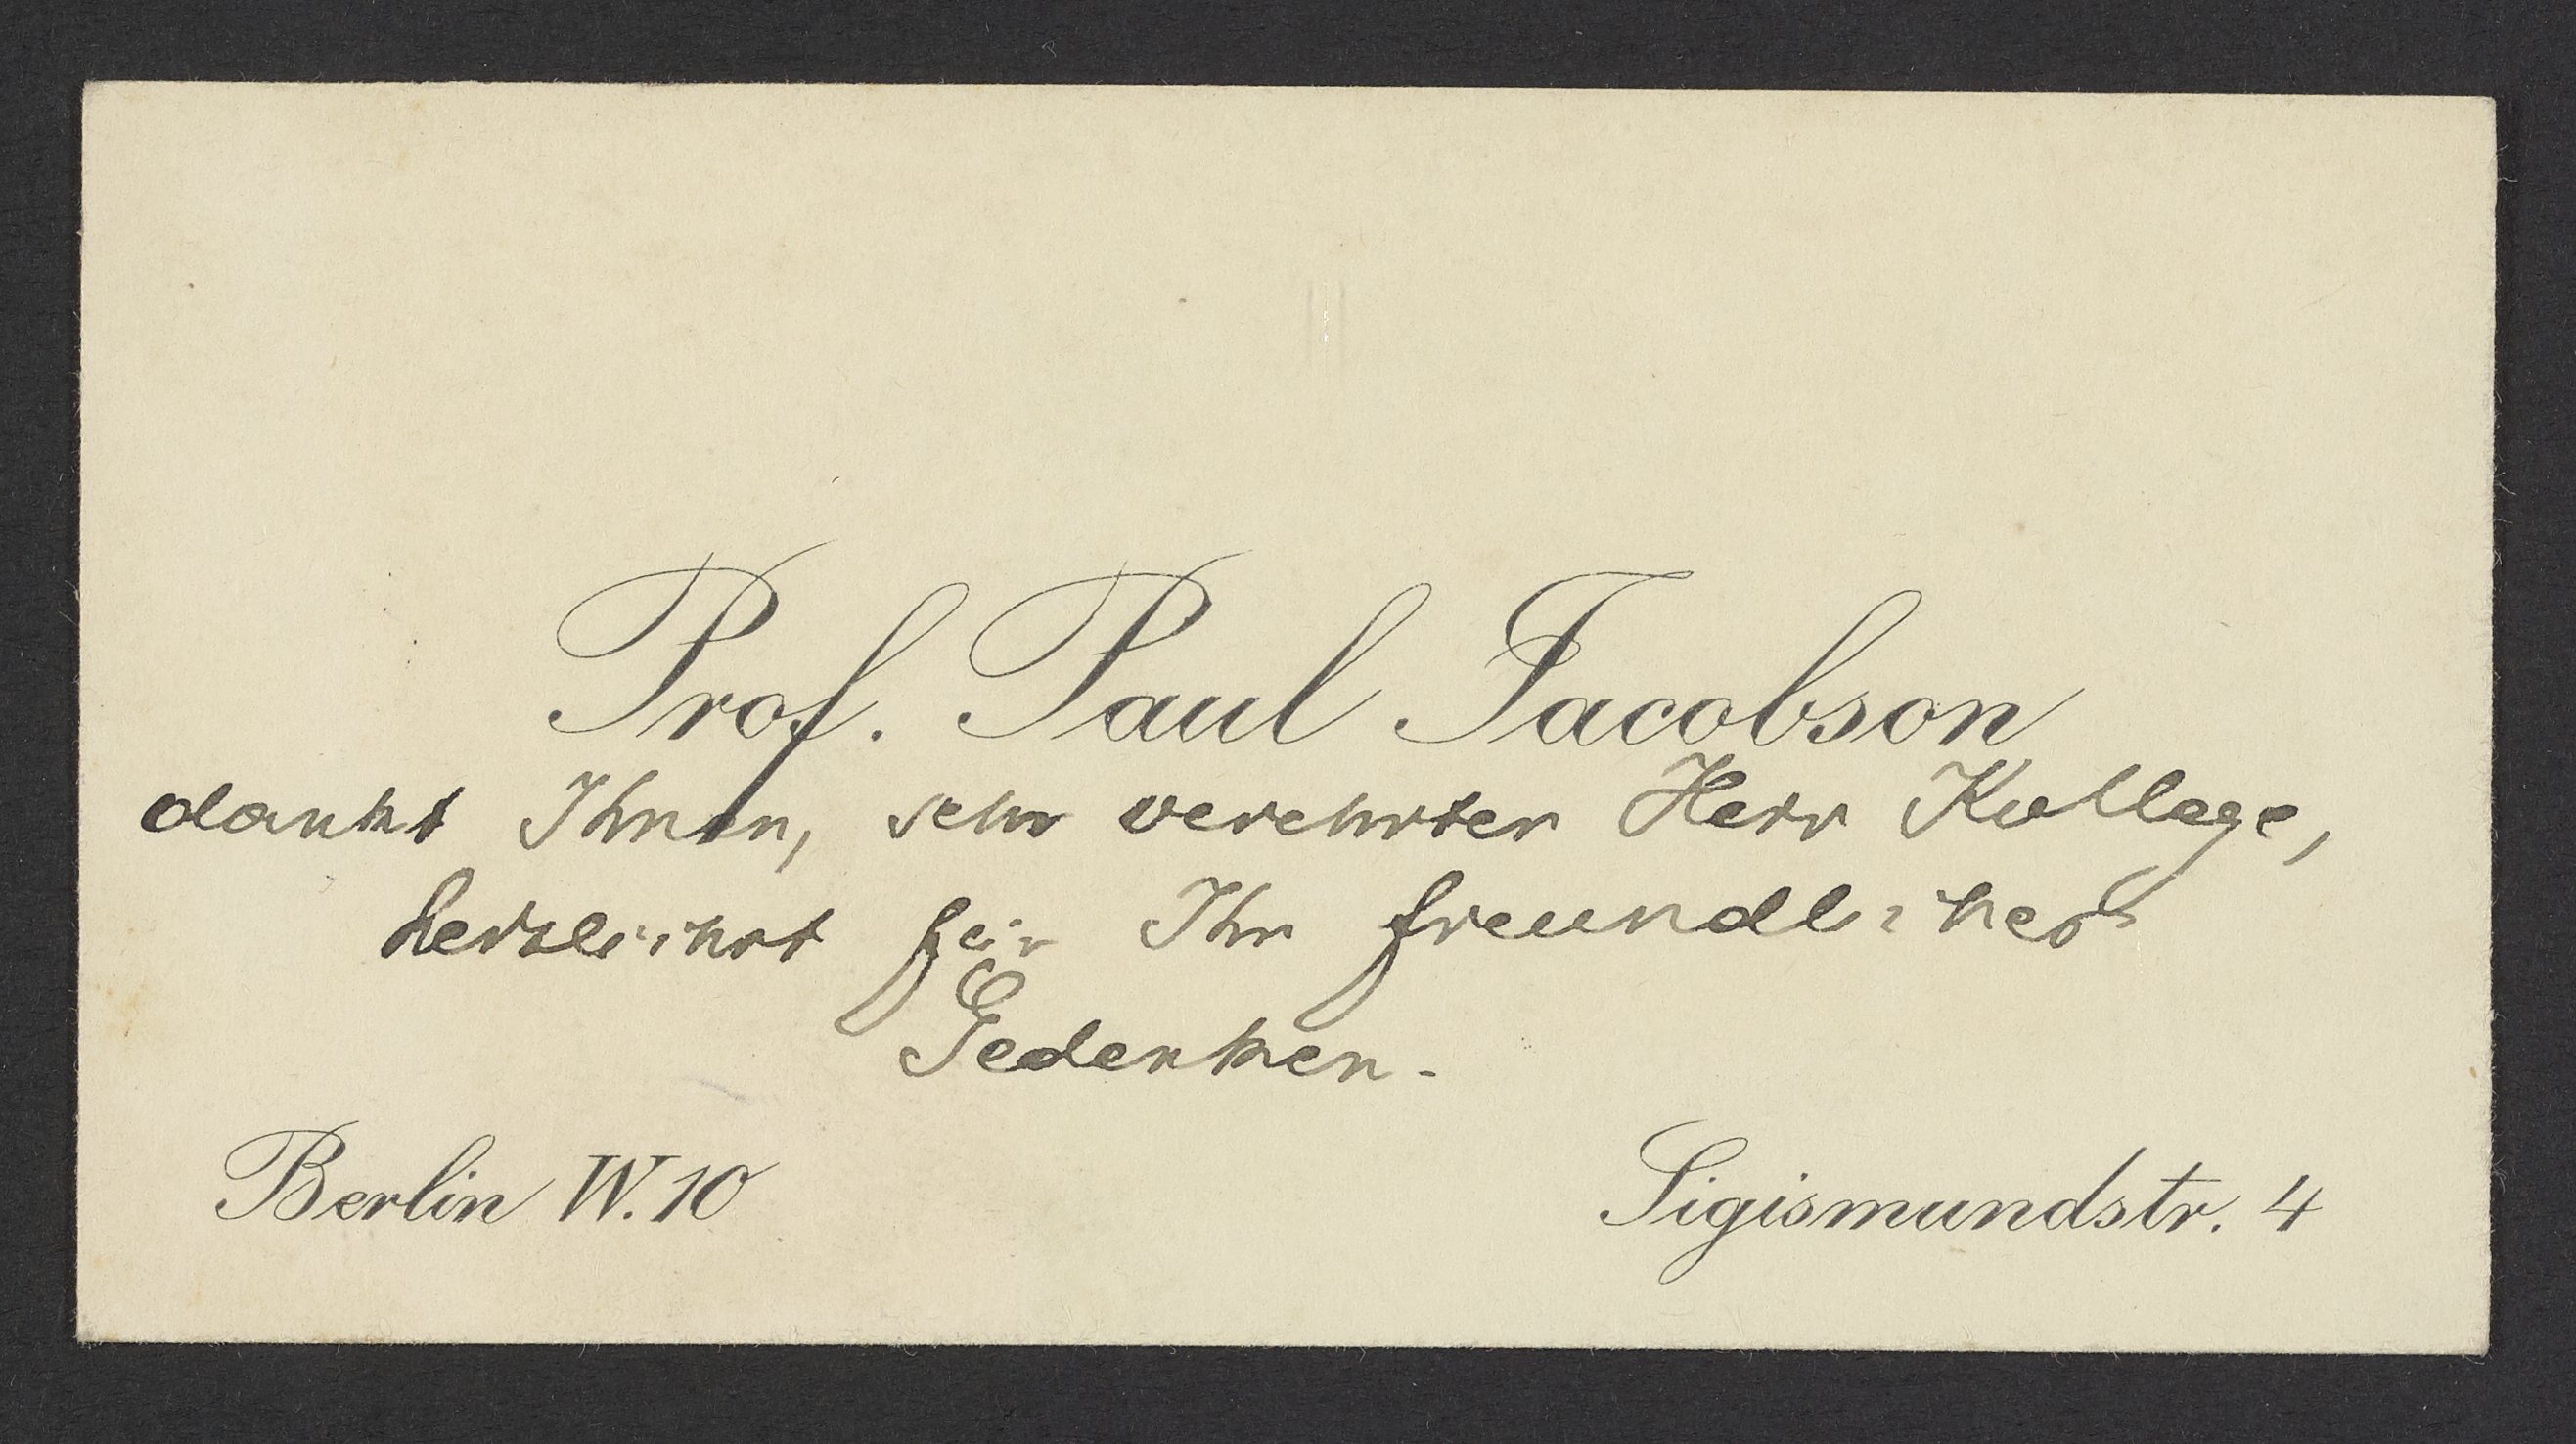 Prof. Paul Jacobson
dankt Ihnen, sehr verehrter Herr Kollege,
herzlichst für Ihr freundliches
Gedenken.
Berlin W. 10
Sigismundstr. 4